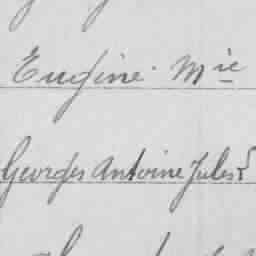 Eugène Mie
Georges Antoine Jules